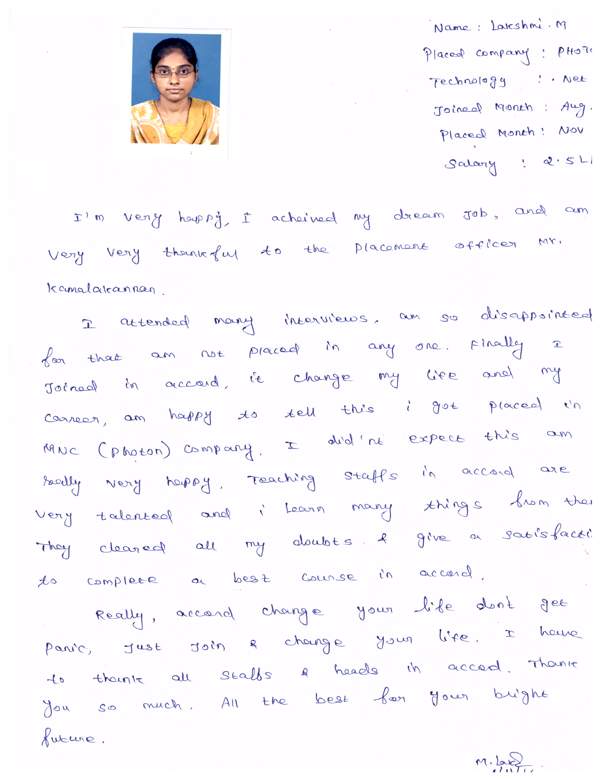 Name : Lakshmi . M
Placed Company :
Technology : . Net
Joined Month : Aug.
Placed Month : Nov
Salary : 2.5
I'm very happy, I acheived my dream Job, and am
very very thankful to the placement officer Mr.
Kamalakannan.
I attended many interviews, am so disappointed
for that am not placed in any one. Finally I
Joined in accord, it change my life and my
carreer, am happy to tell this i got placed in
MNC (photon) company. I did'nt expect this am
really very happy. Teaching staffs in accord are
very talented and i learn many things from
They cleared all my doubts & give a
to complete a best course in accord.
Really, accord change your life don't get
panic, Just Join & change your life. I have
to thank all staffs & heads in accord. Thank
you so much. All the best for your bright
future.
M.